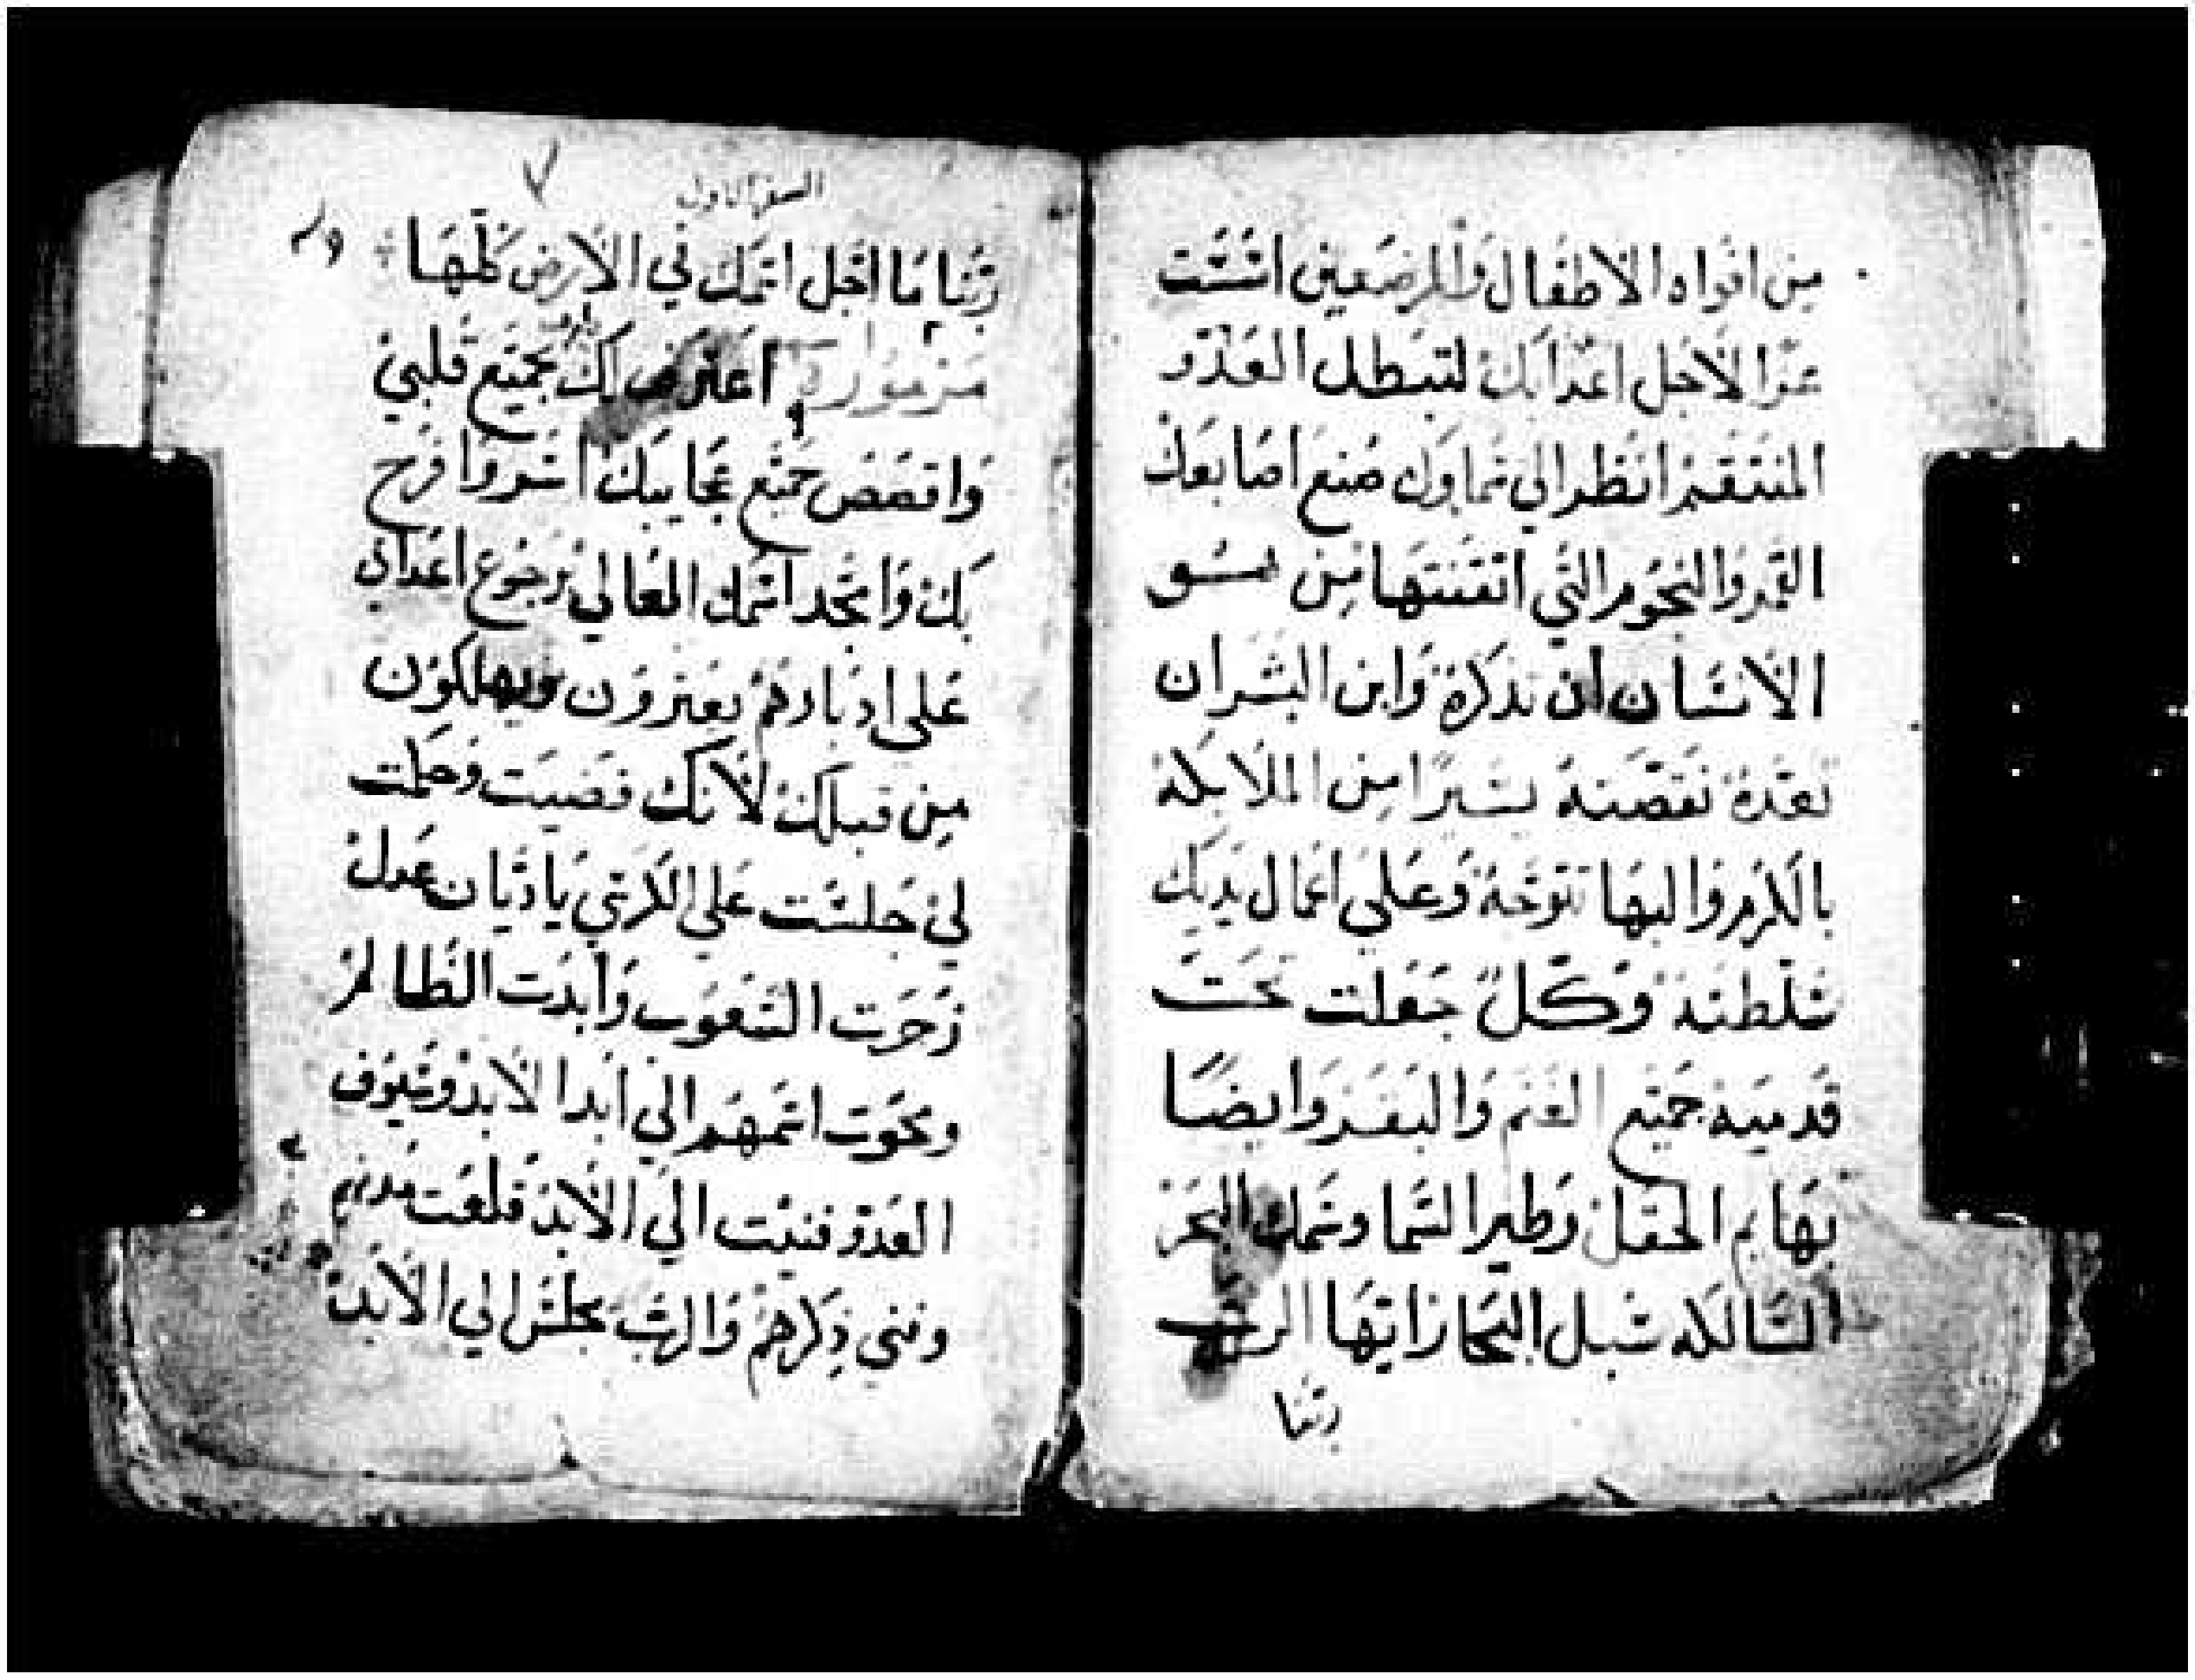 من افواه الاطفال والمرضعين اسست
عزا لاجل اعدايك لتبطل العدو
المنتقم انظر الي سماوك صنع اصابعك
القمر والنجوم التي اتقنتها من هـــو
الانسان ان تذكره وابن البشر ان
تعده نقصته يسيرا من الملايكة
بالكرم والبها توجه وعلي اعمال يديك
سلطنه وكل جعلت تحت
قدميه جميع الغنم والبقر وايضا
بهايم الحقل وطير السما وسمك البحر
السالكه سبل البحار ايها الرب
ربنا
٧
السفر الاول
ربنا ما اجل اسمك في الارض كلها
مزمور اعترف لك بجميع قلبي
واقصص جميع عجايبك اسر وافرح
بك وامجد اسمك العالي برجوع اعداي
علي ادبارهم يعثرون ويهلكون
من قبلك لانك قضيت وحكمت
لي جلست علي الكرسي يا ديان عدل
زجرت الشعوب وابدت الظالم
ومحوت اسمهم الي ابد الابد وسيوف
العدو فنيت الي الابد قلعت مدنهم
ونسي ذكرهم والرب يجلس الي الابد